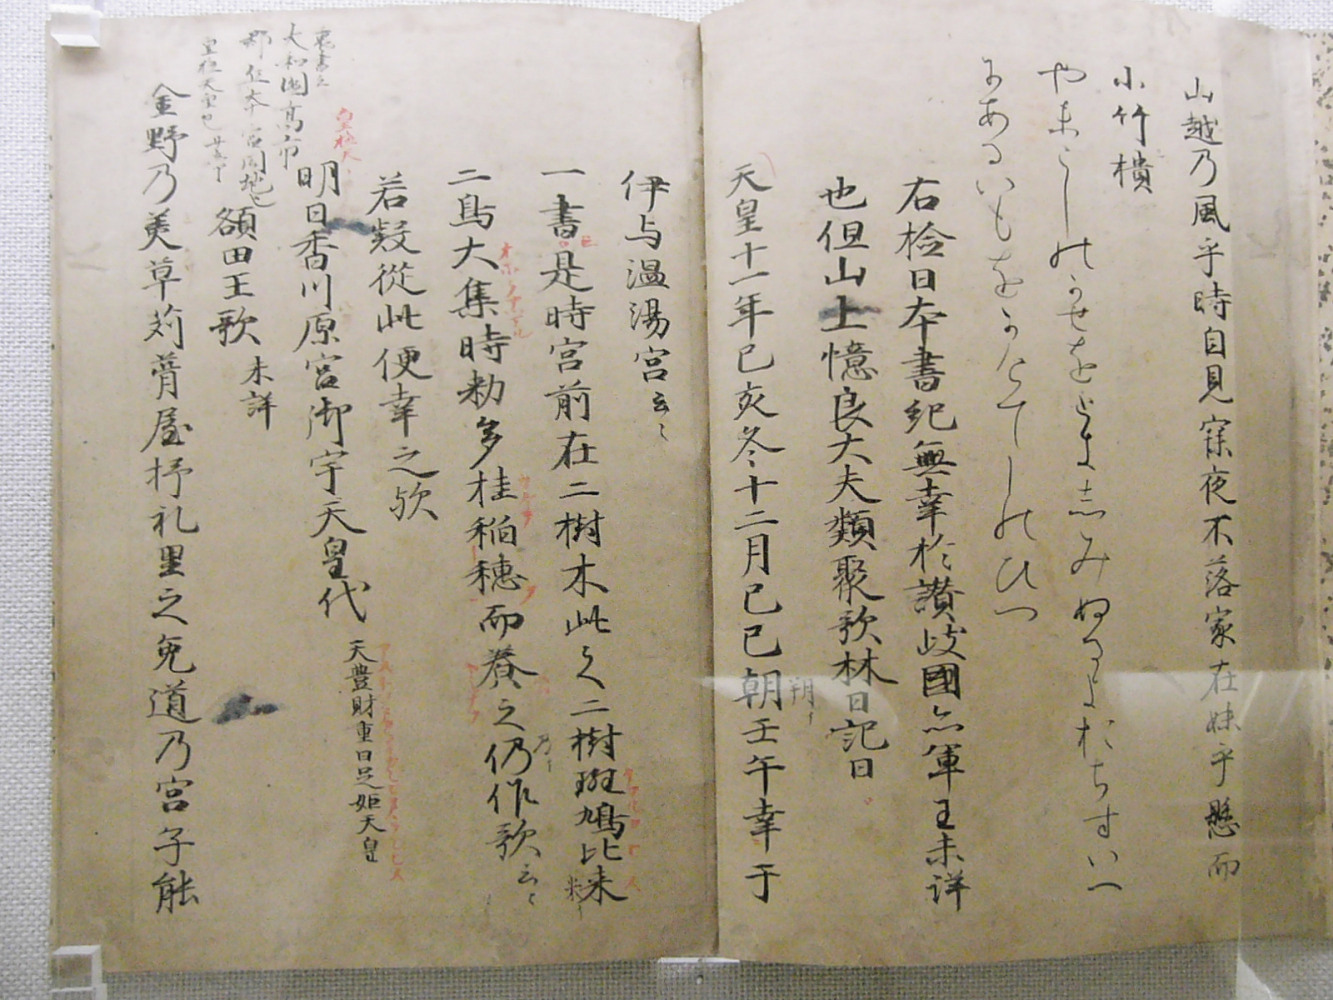 山越乃風乎時自見寐夜不落家在妹乎懸而
小竹樻
やまこしのかせをときしみぬるよおちすいへ
にあるいもをかけてしのひつ
右檢日本書紀無幸於讃岐國亦軍王未詳
也但山上憶良大夫類聚歌林曰記曰
天皇十一年己亥冬十二月己巳朝壬午幸于
朔
伊与温湯宮云々
一書是時宮前在二樹木此之二樹斑鳩比来
米
二鳥大集時勅多桂稲穂而養之仍作歌云々
乃
若疑從此便幸之歟
明日香川原宮御宇天皇代 天豊財重日足姫天皇
皇極天
額田王歌 未詳
裏書云
大和國高市
郡丘本宮同地也
金野乃美草苅葺屋杼礼里之兎道乃宮子能